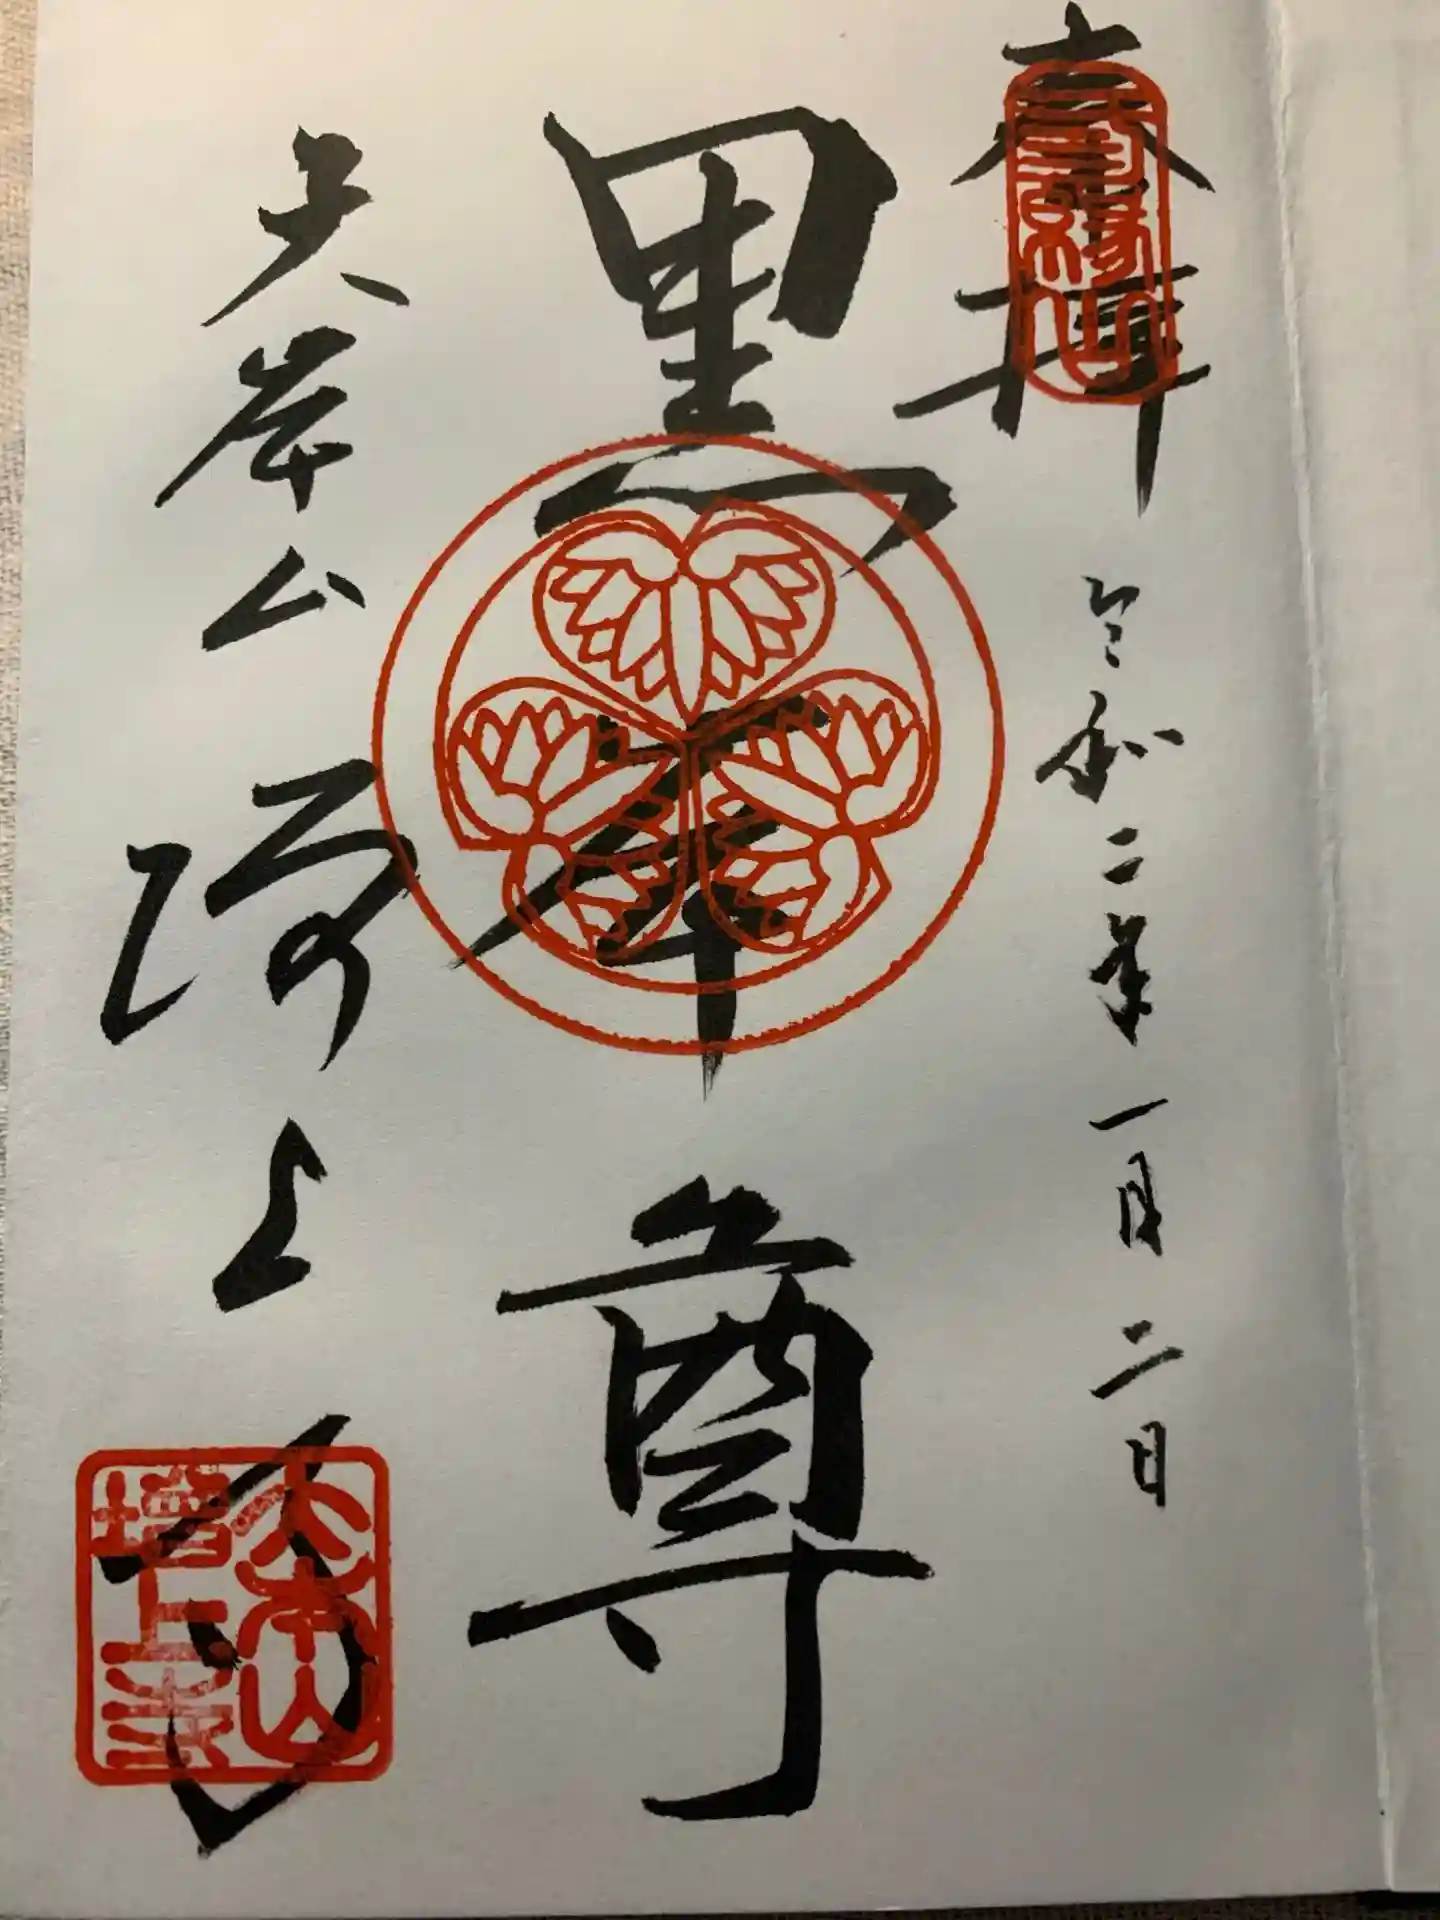 奉拝
令和二年一月二日
黒本尊
大本山
増上寺
三縁山
大本山
増上寺